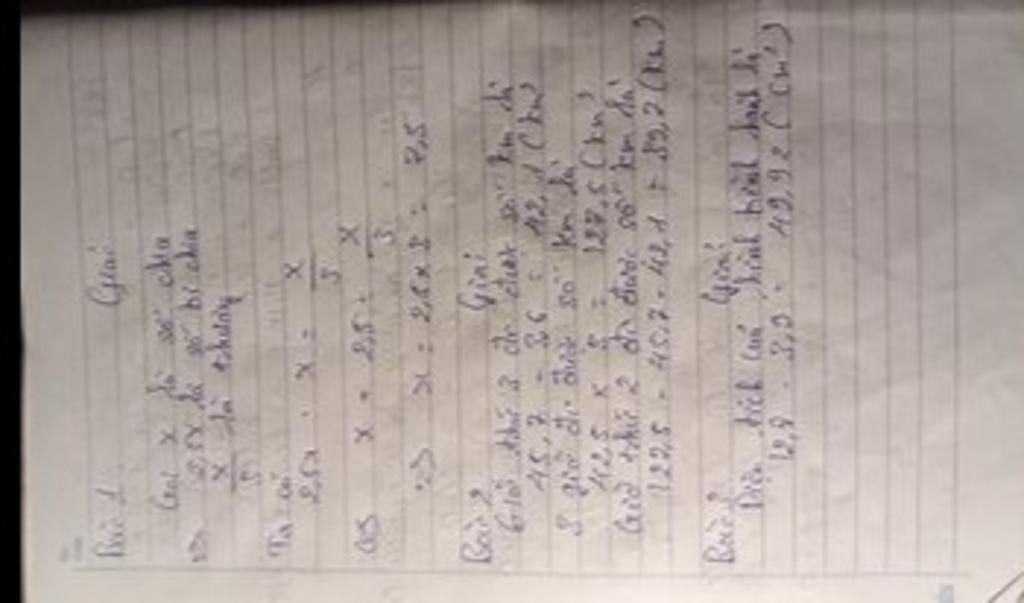 Bài 1 Giải
Gọi x là số chia
=> 2,5x là số bị chia
x/3 là thương
Ta có
2,5x : x = x/3
<=> x = 2,5 = x/3
=> x = 2,5 x 3 = 7,5
Bài 2 Giải
Giờ thứ 3 đi được số km là
45,7 - 3,6 = 42,1 (km)
3 giờ đi được số km là
42,5 x 3 = 127,5 (km)
Giờ thứ 2 đi được số km là
127,5 - 45,7 - 42,1 = 39,7 (km)
Bài 3 Giải
Diện tích của hình bình hành là